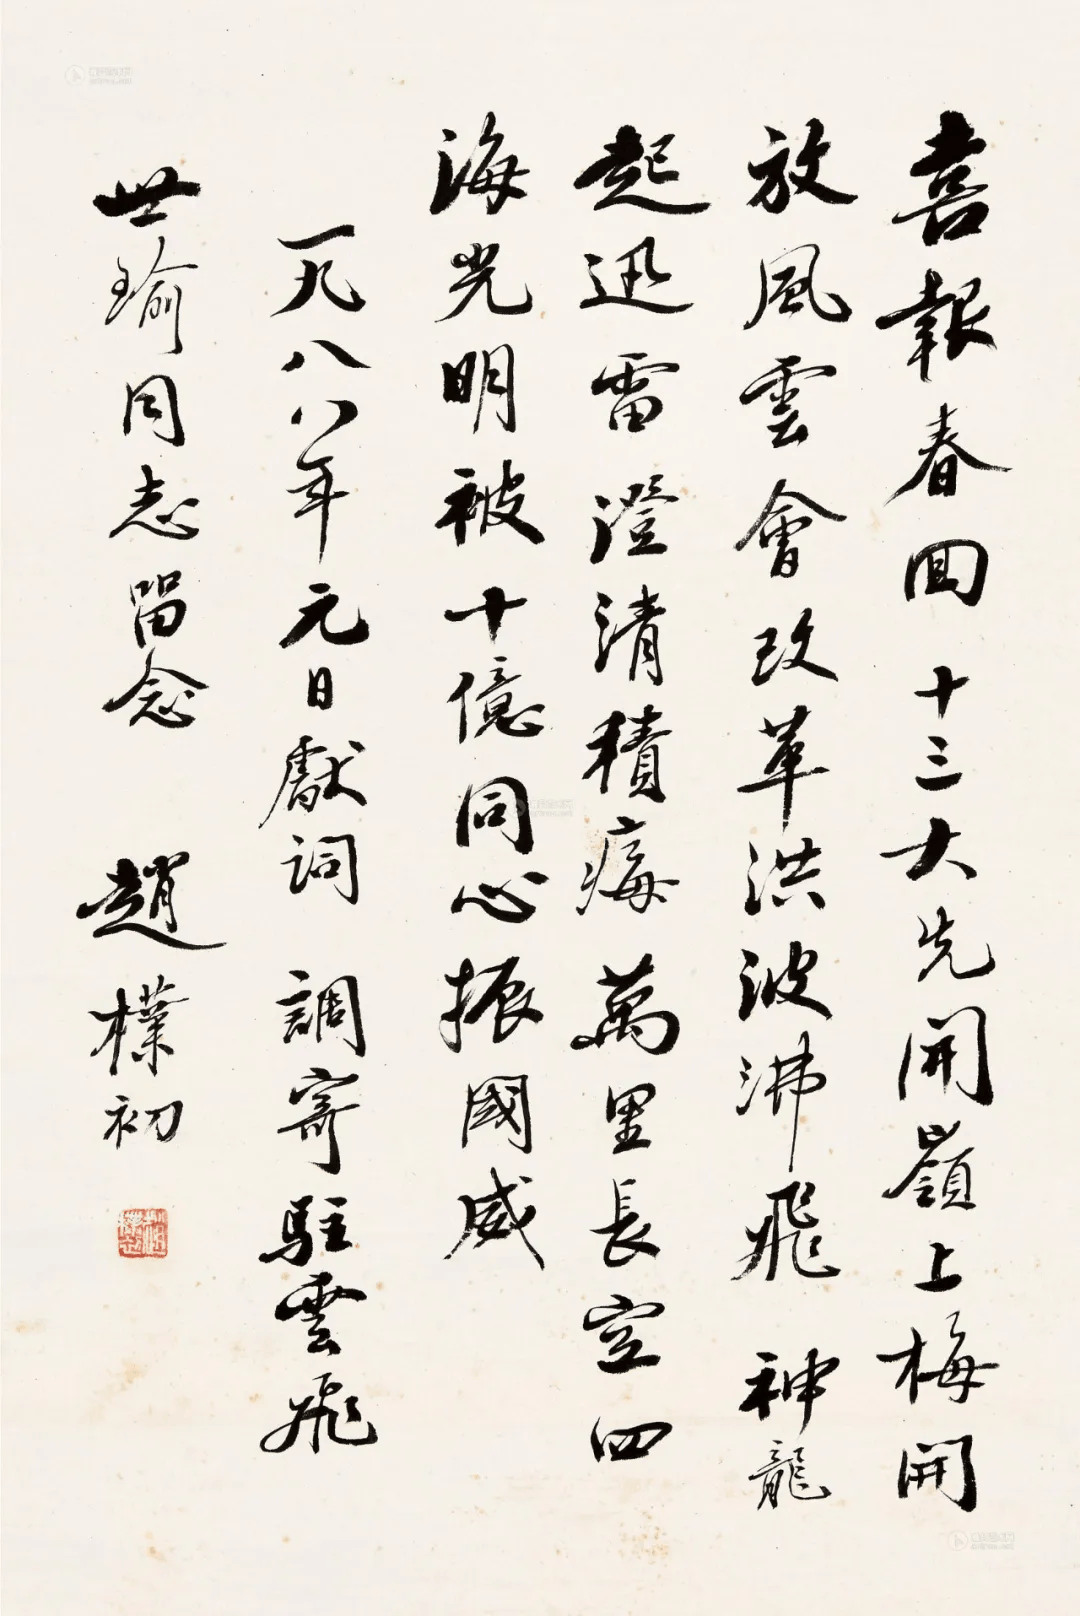 喜報春回十三大先開嶺上梅開
放風雲會改革洪波沸飛神龍
起迅雷澄清積痗萬里長空四
海光明被十億同心振國威
一九八八年元日獻詞調寄駐雲飛
世瑜同志留念趙樸初